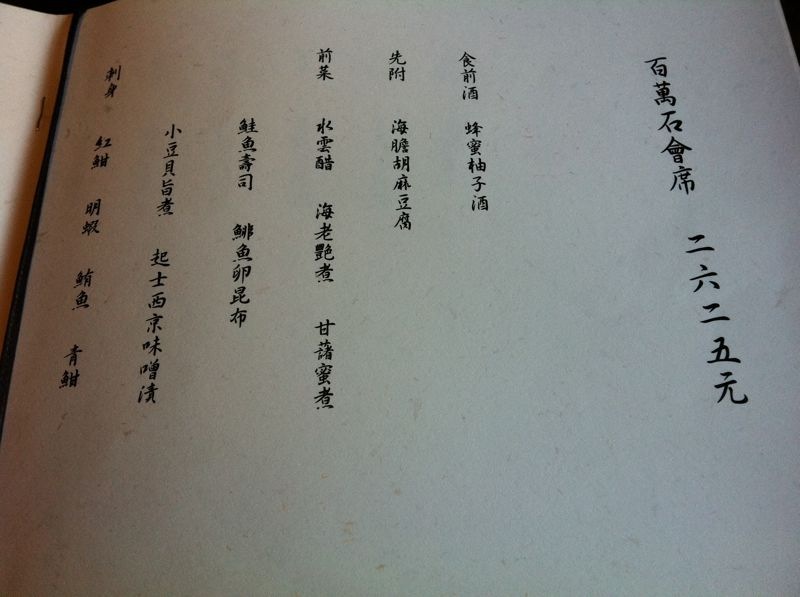 百萬石會席 二六二五元
食前酒 蜂蜜柚子酒
先附 海膽胡麻豆腐
前菜 水雲醋 海老艷煮 甘藷蜜煮
鮭魚壽司 鯡魚卵昆布
小豆貝旨煮 起士西京味噌漬
刺身 紅魽 明蝦 鮪魚 青魽